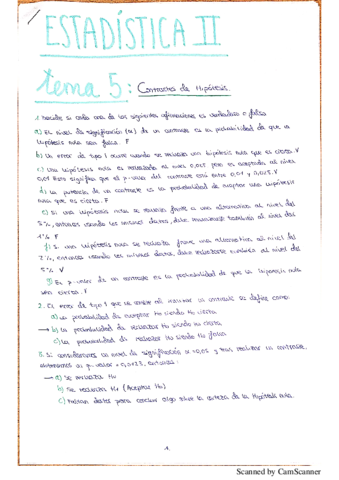 ESTADÍSTICA II
tema 5: Contrastes de Hipótesis
1. Indicar si cada una de las siguientes afirmaciones es verdadera o falsa
a) El nivel de significación (α) de un contraste es la probabilidad de que la
hipótesis nula sea falsa. F
b) Un error de tipo I ocurre cuando se rechaza una hipótesis nula que es cierta. V
c) Una hipótesis nula es rechazada al nivel 0,025 pero es aceptada al nivel
0,01. Esto significa que el p-valor del contraste está entre 0,01 y 0,025. V
d) La potencia de un contraste es la probabilidad de aceptar una hipótesis
nula que es cierta. F
e) Si una hipótesis nula se rechaza frente a una alternativa al nivel del
5%, entonces usando los mismos datos, debe rechazarse también al nivel del
1% F
f) Si una hipótesis nula se rechaza frente una alternativa al nivel del
2%, entonces usando los mismos datos, debe rechazarse también al nivel del
5% V
g) El p-valor de un contraste es la probabilidad de que la hipótesis nula
sea cierta. F
2. El error de tipo I que se comete al realizar un contraste se define como:
a) La probabilidad de aceptar H0 siendo H0 cierta
→ b) La probabilidad de rechazar H0 siendo H0 cierta
c) La probabilidad de rechazar H0 siendo H0 falsa
3. Si consideramos un nivel de significación α=0,05 y tras realizar un contraste
obtenemos un p-valor = 0,0123, entonces:
→ a) Se rechaza H0
b) Se rechaza H1 (Aceptar H0)
c) Faltan datos para concluir algo sobre la certeza de la hipótesis nula.
1.
Scanned by CamScanner